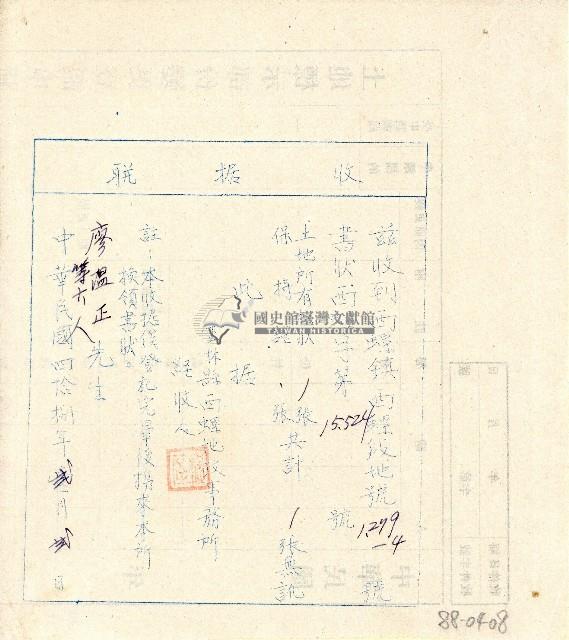 收据聯
茲收到西螺鎮西螺段地號1.279-4號
書狀西字第15.524號
土地所有狀1張共計1張無訛
保持
此据
雲林縣西螺地政事務所
經收人
註：本收据俟登記完畢後携來本所
換領書狀。
廖溫正
等六人先生
中華民國四拾捌年貳月貳日
國史館臺灣文獻館
TAIWAN HISTORICA
88-04-08